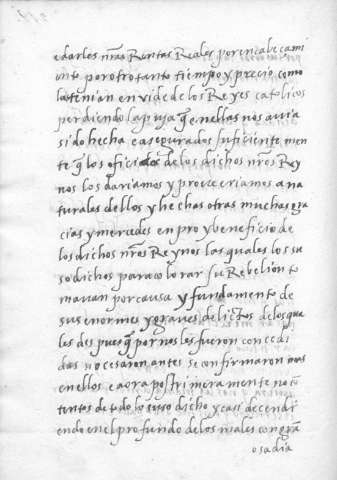 e darles nr̃as Rentas Reales por encabeçami
ento por otro tanto tiempo y precio como
la tenian en vida de los Reyes catolicos
perdiendo la puja q̃ en ellas nos avia
sido hecha e asegurados suficiente men
te q̃ los oficios de los dichos nr̃os Rey
nos los dariamos y proveeriamos a na
turales dellos y hechas otras muchas gra
cias y mercedes en pro y beneficio de
los dichos nr̃os Reynos las quales los su
so dichos para colorar su Rebelion to
mavan por causa y fundamento de
sus enormes y graves delictos de los qua
les despues q̃ por nos les fueron concedi
das no cesaron antes se confirmaron mas
en ellos e aora postrimeramente no con
tentos de todo lo suso dicho y casi decendi
endo en el profundo de los males con gran
osadia